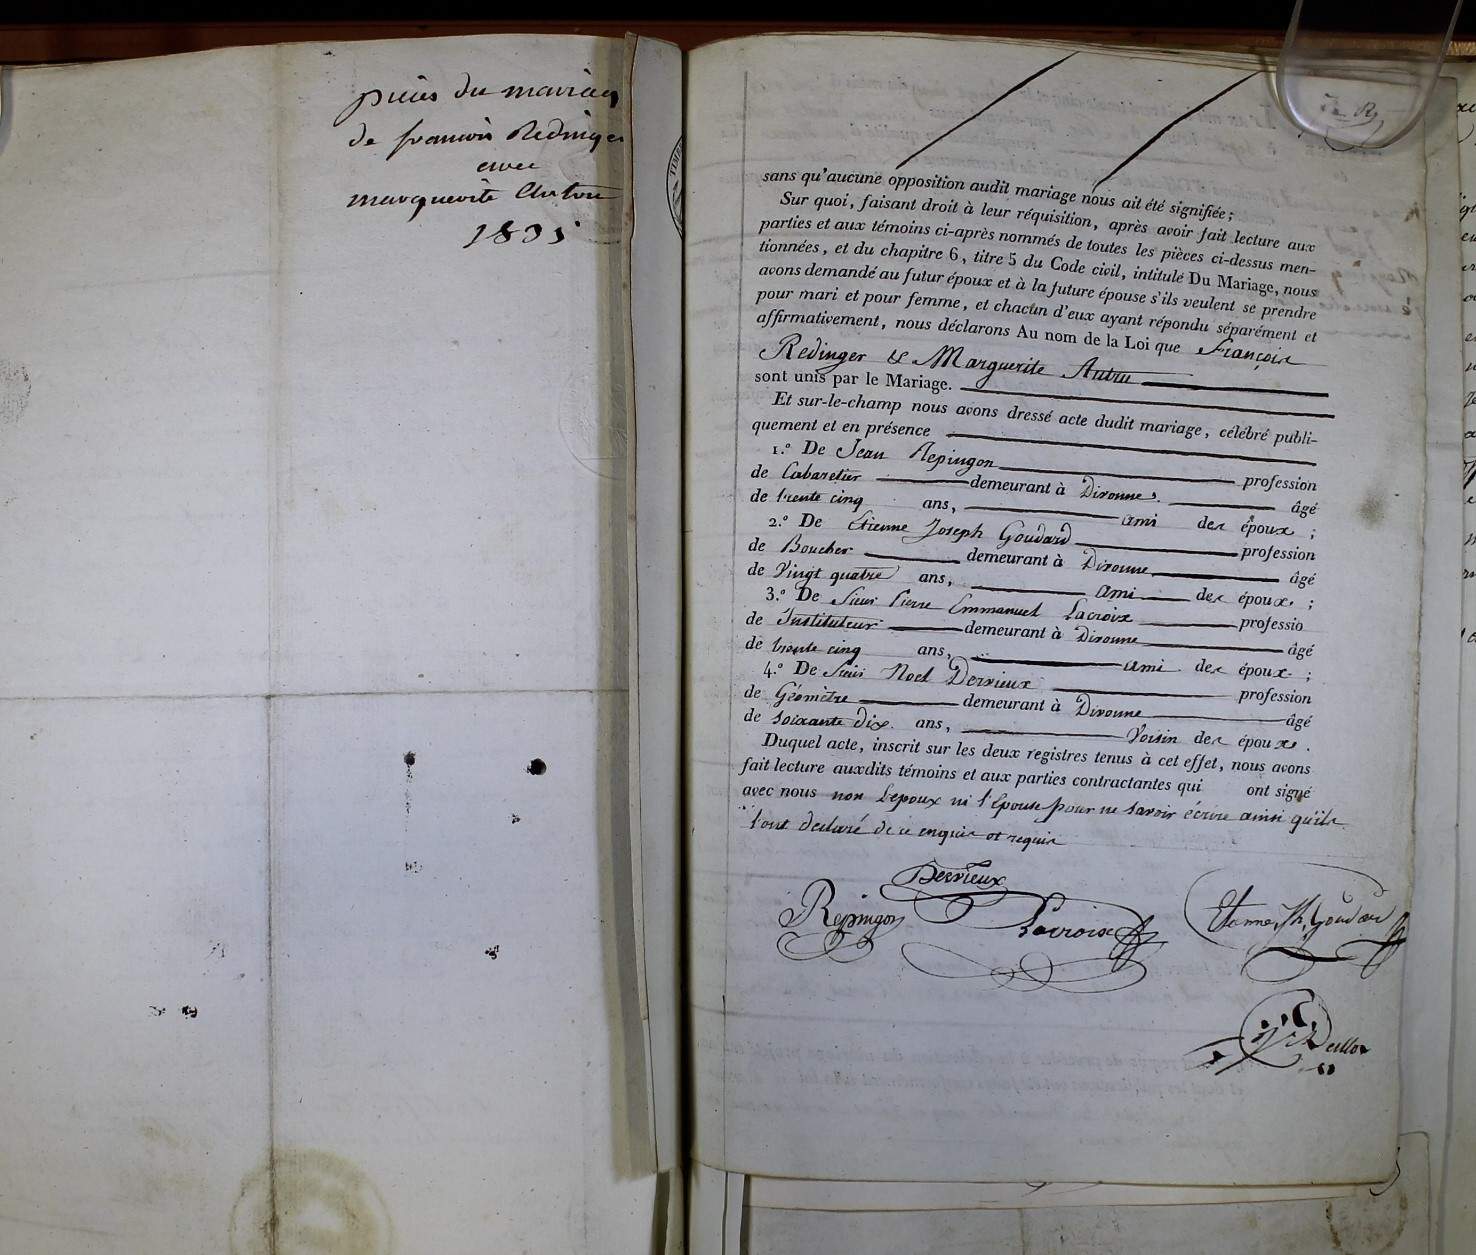 pieces du mariag
de francois Redinger
avec
marguerite Autru
1835
sans qu'aucune opposition audit mariage nous ait été signifiée ;
Sur quoi, faisant droit à leur réquisition, après avoir fait lecture aux
parties et aux témoins ci-après nommés de toutes les pièces ci-dessus men-
tionnées, et du chapitre 6, titre 5 du Code civil, intitulé Du Mariage, nous
avons demandé au futur époux et à la future épouse s'ils veulent se prendre
pour mari et pour femme, et chacun d'eux ayant répondu séparément et
affirmativement, nous déclarons Au nom de la Loi que François
Redinger & Marguerite Autru
sont unis par le Mariage.
Et sur-le-champ nous avons dressé acte dudit mariage, célébré publi-
quement et en présence
1.º De Jean Repingon profession
de Cabaretier demeurant à Divonne âgé
de trente cinq ans, ami des époux ;
2.º De Etienne Joseph Goudard profession
de Boucher demeurant à Divonne âgé
de Vingt quatre ans, ami des époux ;
3.º De Sieur Pierre Emmanuel Lacroix professio
de Instituteur demeurant à Divonne âgé
de trente cinq ans, ami des époux ;
4.º De Sieur Noel Dervieux profession
de Géomètre demeurant à Divonne âgé
de soixante dix ans, Voisin des époux .
Duquel acte, inscrit sur les deux registres tenus à cet effet, nous avons
fait lecture auxdits témoins et aux parties contractantes qui ont signé
avec nous non L'epoux ni l'Epouse pour ne savoir écrire ainsi qu'ils
l'ont declaré de ce enquis et requis
Dervieux
Repingon Lacroix Etienne Jh. Goudard